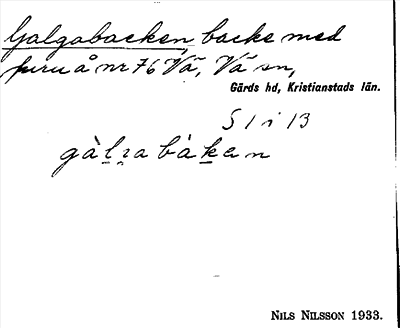 Galgabacken, backe med
furu å nr 76 Vä, Vä sn,
Gärds hd, Kristianstads län.
S 1 i 13
gàlra bàkan
NILS NILSSON 1933.